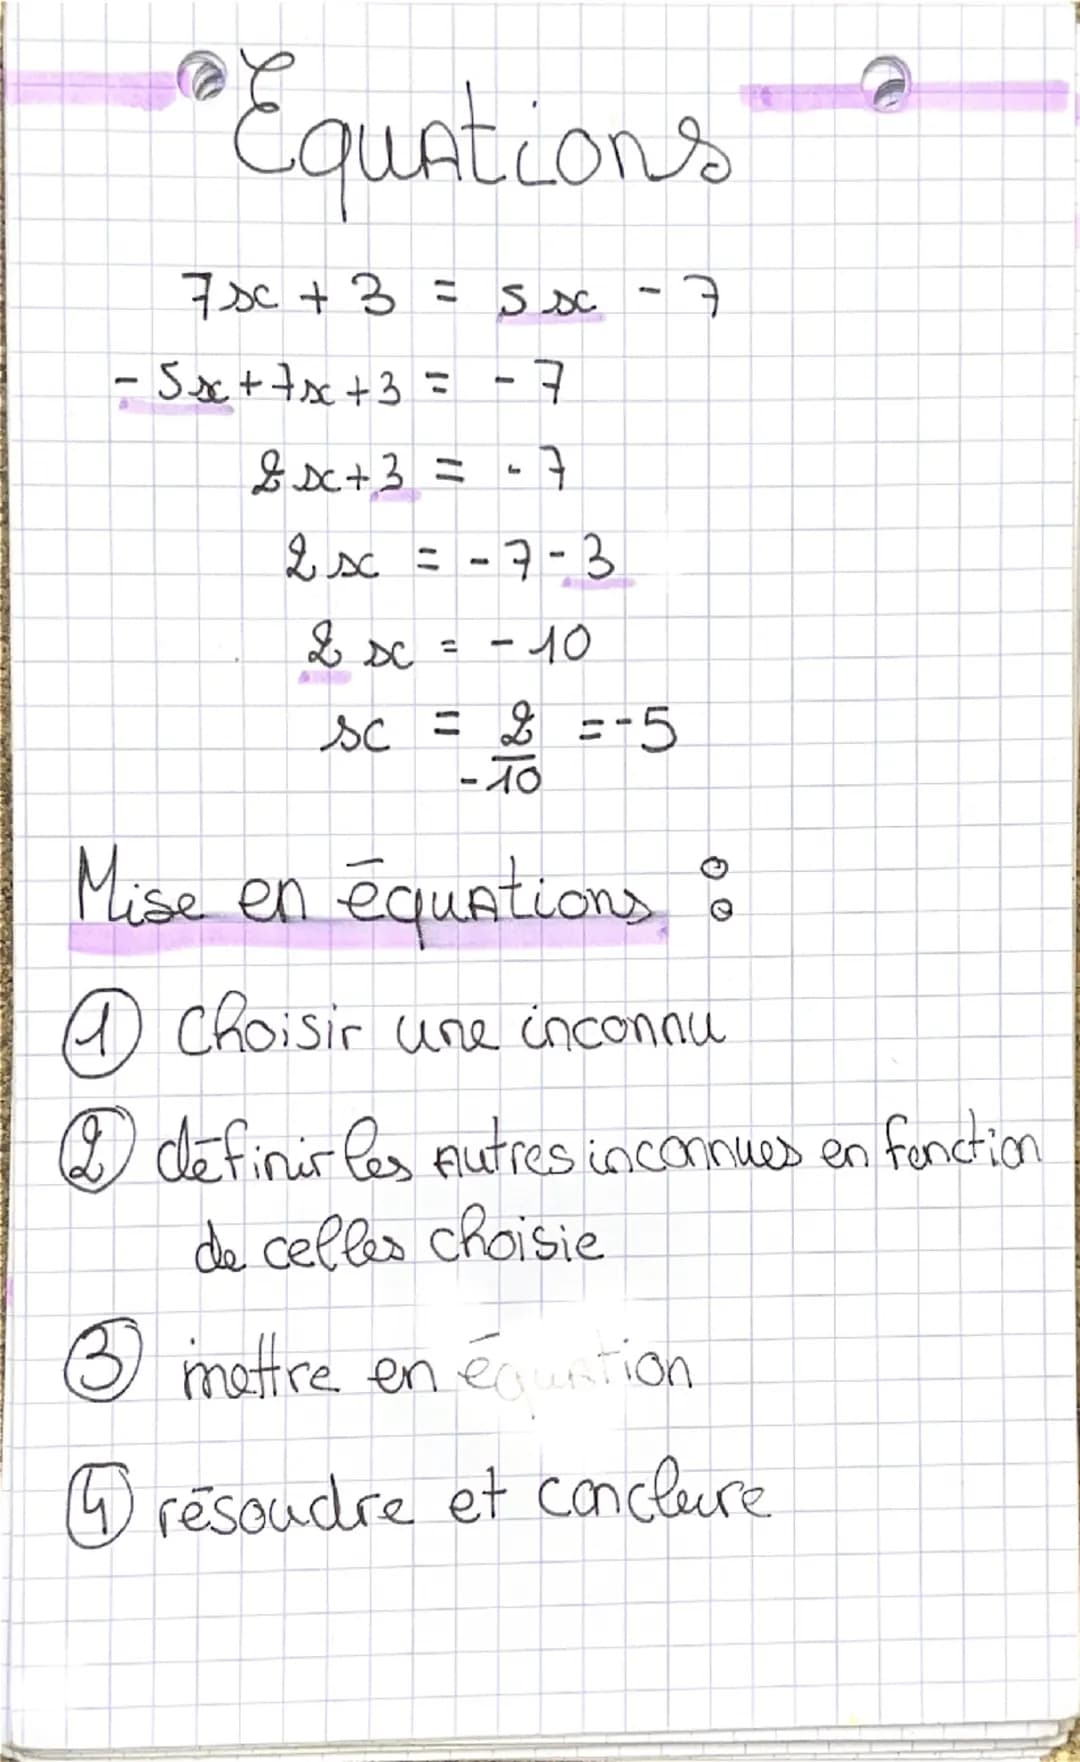 Équations
7x + 3 = 5x - 7
- 5x + 7x + 3 = - 7
2x + 3 = - 7
2x = - 7 - 3
2x = - 10
x = 2/-10 = -5
Mise en équations :
① Choisir une inconnu
② définir les autres inconnues en fonction
de celles choisie
③ mettre en équation
④ résoudre et conclure